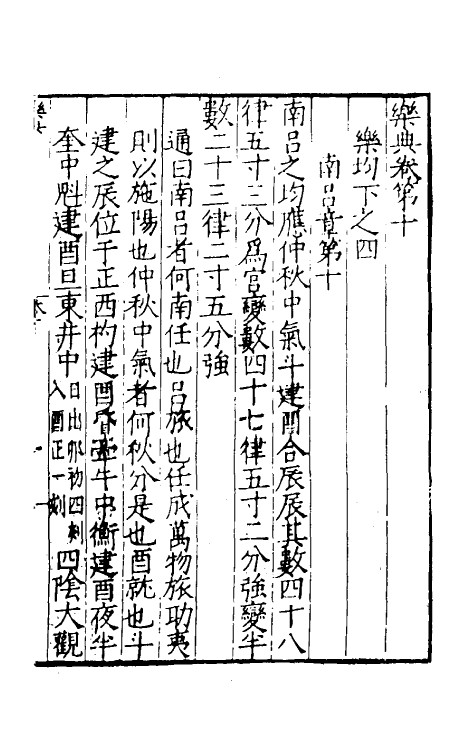 樂典卷第十
樂均下之四
南呂章第十
南呂之均應仲秋中氣斗建酉合辰辰其數四十八
律五寸三分爲宫變數四十七律五寸二分強變半
數二十三律二寸五分強
通曰南呂者何南任也呂旅也任成萬物旅助夷
則以施陽也仲秋中氣者何秋分是也酉就也斗
建之辰位于正西杓建酉昏牽牛中衡建酉夜半
奎中魁建酉旦東井中日出卯初四刻入酉正一刻四陰大觀